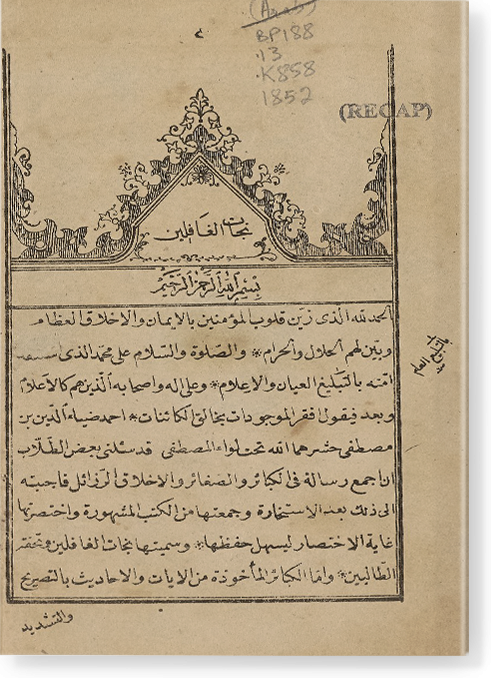 (Arab)
BP188
.13
.K858
1852
(RECAP)
نجات الغافلين
بسم الله الرحمن الرحيم
الحمد لله الذى زين قلوب المؤمنين بالايمان والاخلاق العظام
وبين لهم الحلال والحرام * والصلوة والسلام على محمد الذى
امته بالتبليغ العيان والاعلام * وعلى اله واصحابه الذين هم كالاعلام
وبعد فيقول افقر الموجودات بخالق الكائنات * احمد ضياء الدين بن
مصطفى حشرهما الله تحت لواء المصطفى قد سئلنى بعض الطلاب
ان اجمع رسالة فى الكبائر والصغائر والاخلاق الرزائل فاجبته
الى ذلك بعد الاستخارة وجمعتها من الكتب المشهورة واختصرتها
غاية الاختصار ليسهل حفظها * وسميتها بنجات الغافلين وتحفة
الطالبين * واما الكبائر المأخوذة من الايات والاحاديث بالتصريح
والتشديد